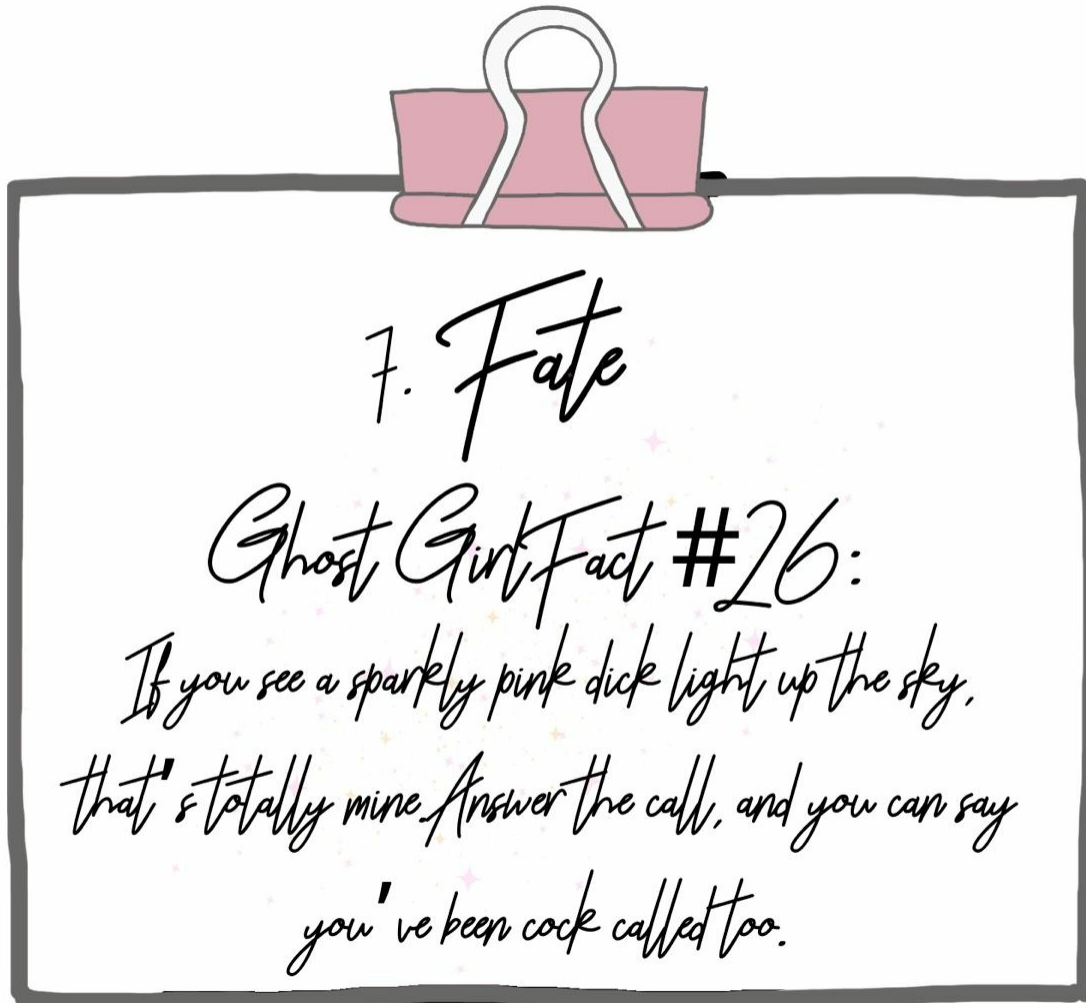 7. Fate
Ghost Girl Fact #26:
If you see a sparkly pink dick light up the sky,
that's totally mine. Answer the call, and you can say
you've been cock called too.